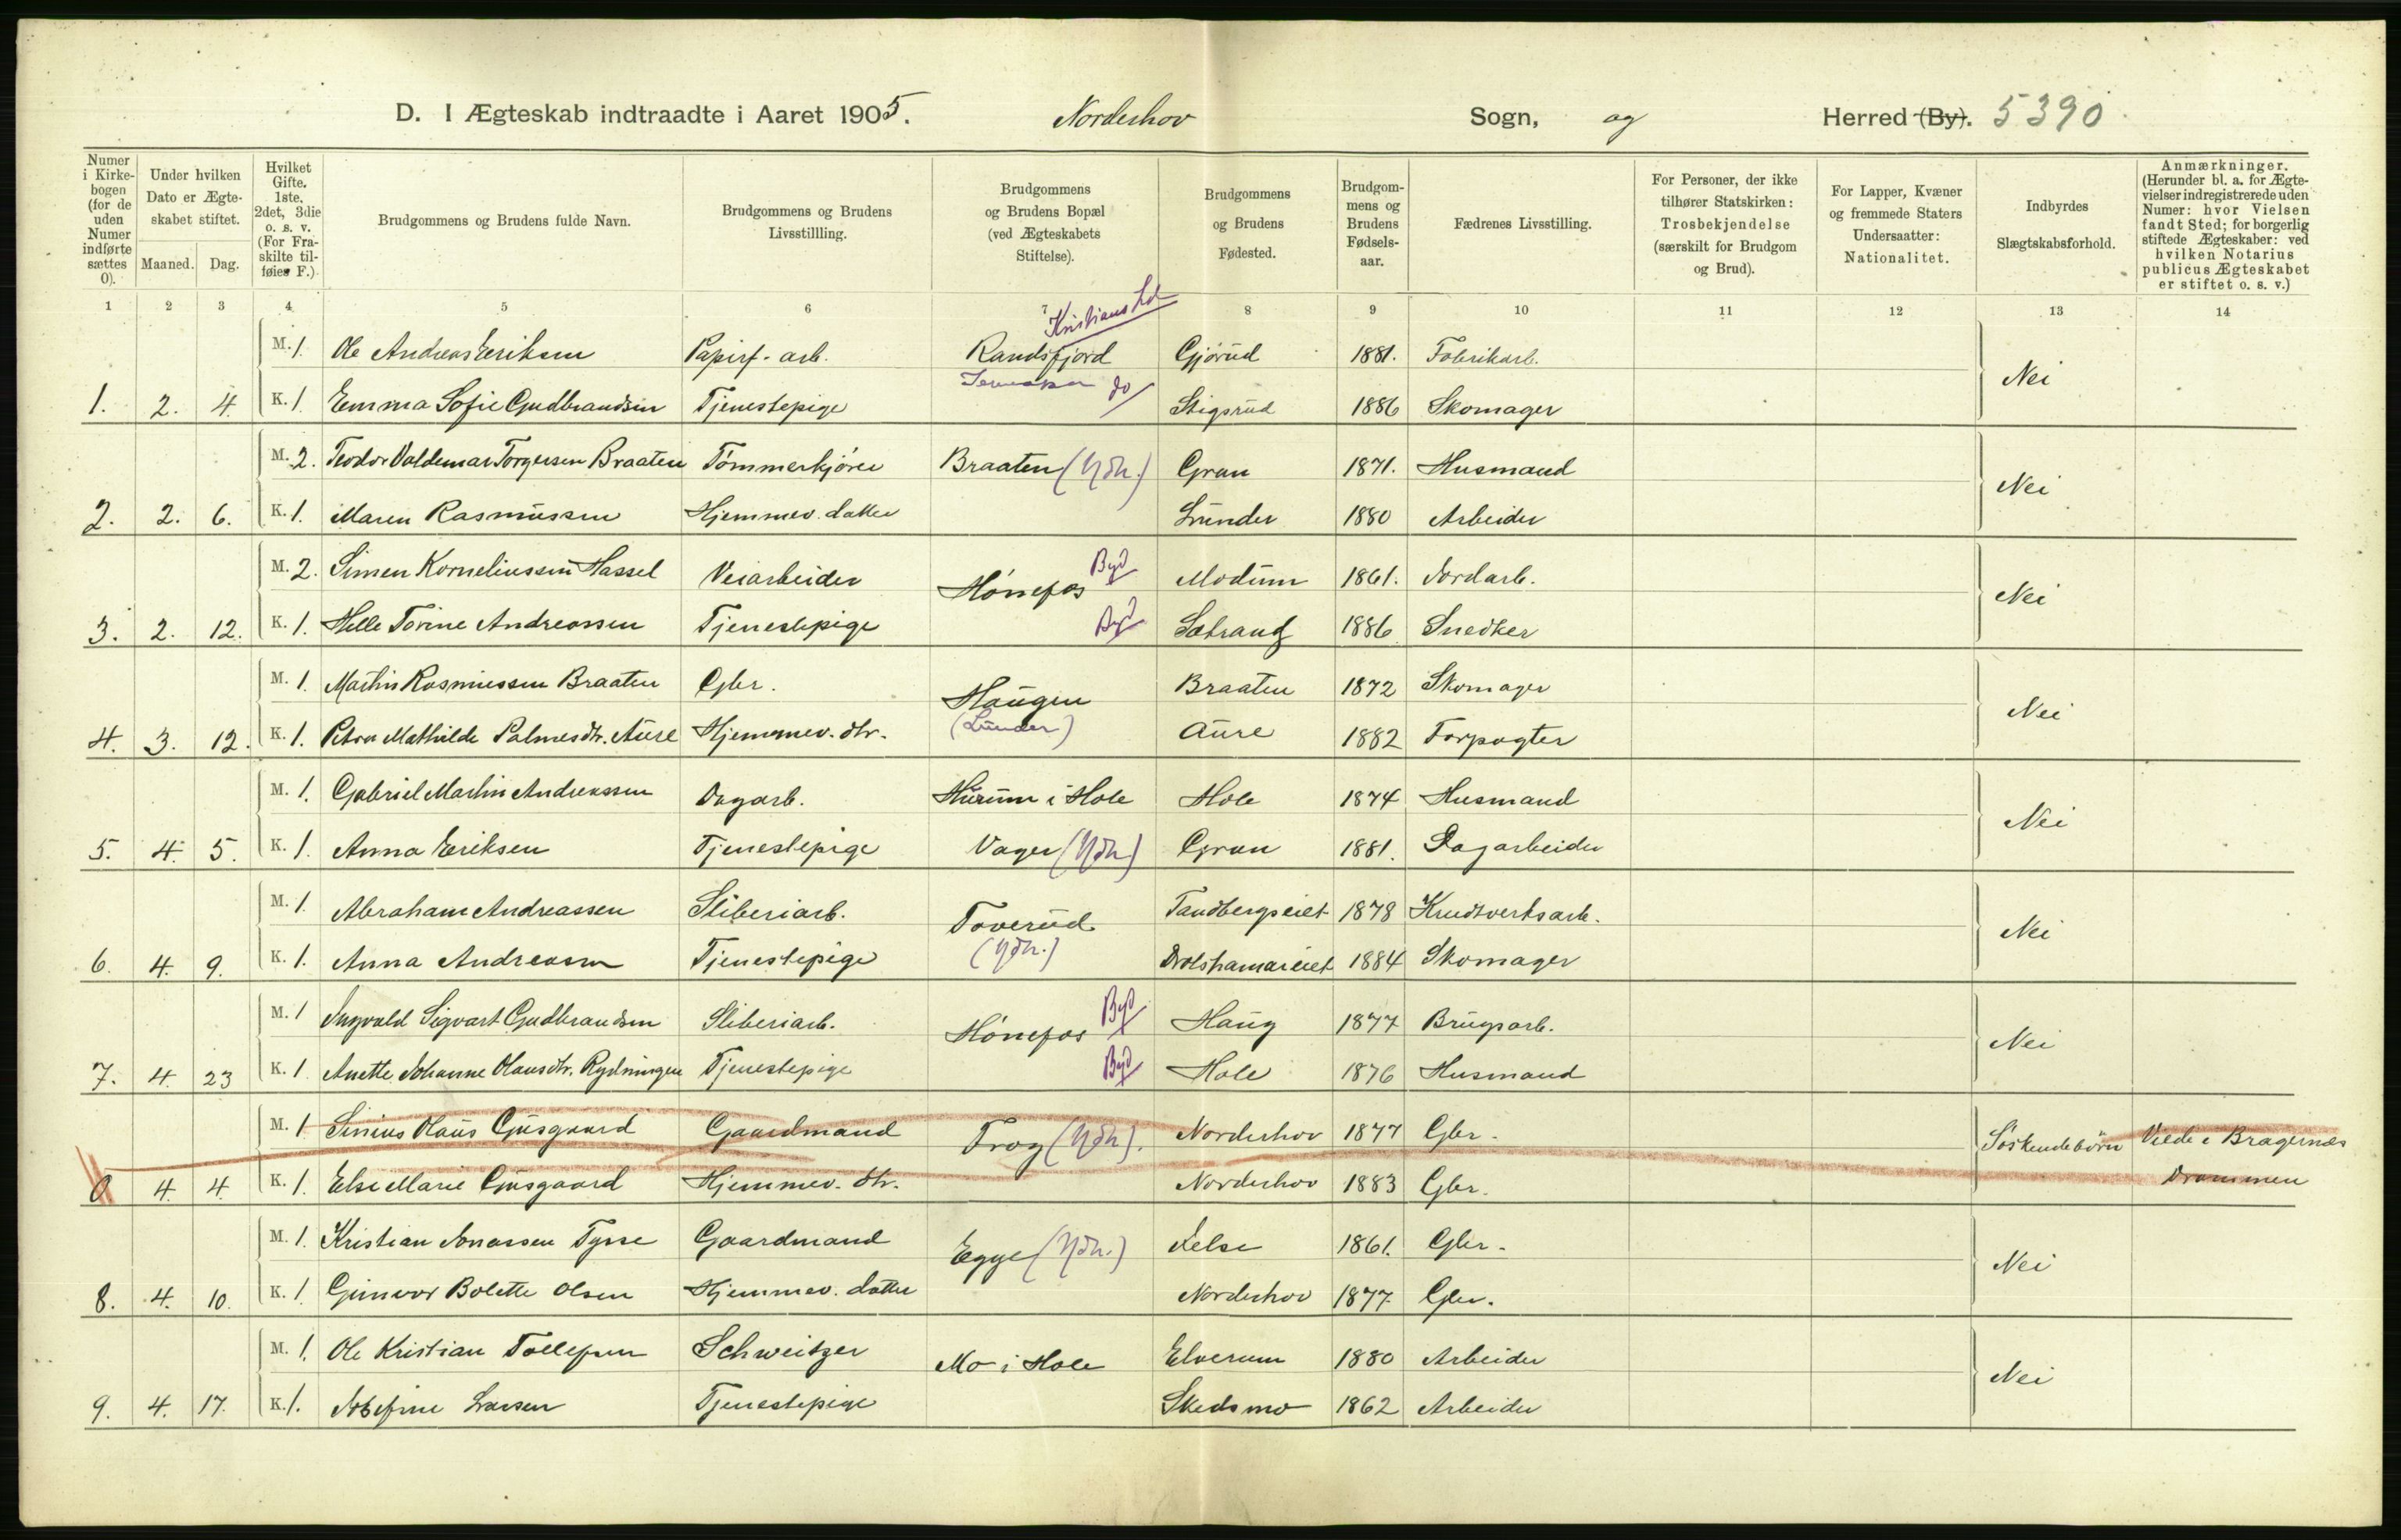 D. I Ægteskab indtraadte i Aaret 1905. Norderhov Sogn, og Herred (By). 5390
Numer i Kirkebogen (for de uden Numer indførte sættes 0).
Under hvilken Dato er Ægteskabet stiftet.
Maaned. Dag.
Hvilket Gifte. 1ste. 2det, 3die o. s. v. (For Fraskilte tilføies F.)
Brudgommens og Brudens fulde Navn.
Brudgommens og Brudens Livsstillling.
Brudgommens og Brudens Bopæl (ved Ægteskabets Stiftelse).
Brudgommens og Brudens Fødested.
Brudgommens og Brudens Fødselsaar.
Fædrenes Livsstilling.
For Personer, der ikke tilhører Statskirken: Trosbekjendelse (særskilt for Brudgom og Brud).
For Lapper, Kvæner og fremmede Staters Undersaatter: Nationalitet.
Indbyrdes Slægtskabsforhold.
Anmærkninger. (Herunder bl. a. for Ægtevielser indregistrerede uden Numer: hvor Vielsen fandt Sted; for borgerlig stiftede Ægteskaber: ved hvilken Notarius publicus Ægteskabet er stiftet o. s. v.)
1 2 3 4 5 6 7 8 9 10 11 12 13 14
Kristians
M. 1. Ole Andreas Eriksen Papirf-arb. Randsfjord Gjørud 1881. Fabrikarb. Nei
1. 2. 4. K. 1 Emma Sofie Gudbrandsen Tjenestepige do Stigsrud 1886 Skomager
M. 2. Teodor Valdemar Torgersen Braaten Tømmerkjører Braaten (Ndh.) Gran 1871. Husmand Nei
2. 2. 6. K. 1. Maren Rasmussen Hjemmev. datter Lunder 1880 Arbeider
M. 2. Simen Korneliussen Hassel Veiarbeider Hønefos Byd Modum 1861. Jordarb. Nei
3. 2. 12. K. 1. Helle Torine Andreassen Tjenestepige Byd Sætrang 1886 Snedker
M. 1. Martin Rasmussen Braaten Gbr. Haugen Braaten 1872 Skomager Nei
4. 3. 12. K. 1. Petra Mathilde Palmesdtr. Aure Hjemmev. dtr. (Lunder) Aure 1882 Forpagter
M. 1. Gabriel Martin Andreassen Dagarb. Hurum i Hole Hole 1874 Husmand Nei
5. 4. 5. K. 1. Anna Eriksen Tjenestepige Vager (Ndh) Gran 1881. Dagarbeider
M. 1. Abraham Andreassen Sliberiarb. Toverud Tandbergseiet 1878 Krudtverksarb. Nei
6. 4. 9. K. 1. Anna Andreasen Tjenestepige (Ndh.) Drolshamareiet 1884 Skomager
M. 1 Ingvald Sigvart Gudbrandsen Sliberiarb. Hønefos Byd Haug 1877 Brugsarb. Nei
7. 4. 23 K. 1 Anette Johanne Olausdtr. Rydningen Tjenestepige Byd Hole 1876 Husmand
M. 1 Sinius Olaus Gusgaard Gaardmand Trog (Ndh). Norderhov 1877 Gbr. Søskendebørn Viede i Bragernæs
0 4. 4. K. 1. Else Marie Gusgaard Hjemmev. dtr. Norderhov 1883 Gbr. Drammen
M. 1. Kristian Jonassen Tysse Gaardmand Egge (Ndh.) Jelse 1861. Gbr. Nei
8. 4. 10. K. 1 Gunvor Bolette Olsen Hjemmev. datter Norderhov 1877 Gbr.
M. 1. Ole Kristian Tollefsen Schweitzer Mo i Hole Elverum 1880 Arbeider Nei
9. 4. 17. K. 1. Josefine Larsen Tjenestepige Skedsmo 1862 Arbeider